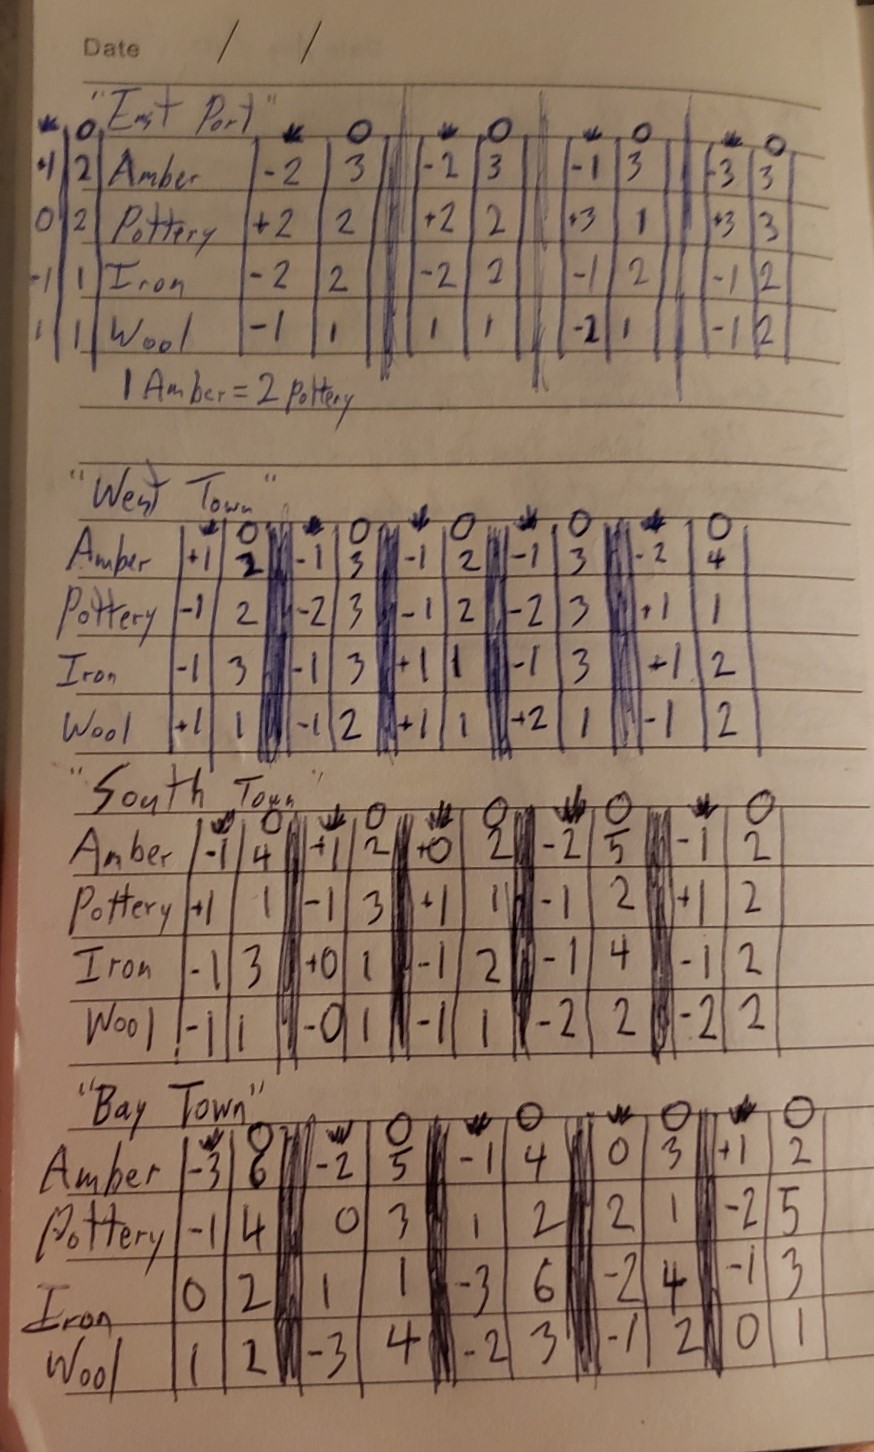 Date / /
"East Port"
O O O O O
+1 2 Amber -2 3 -2 3 -1 3 -3 3
0 2 Pottery +2 2 +2 2 +3 1 +3 3
-1 1 Iron -2 2 -2 2 -1 2 -1 2
1 1 Wool -1 1 1 1 -2 1 -1 2
1 Amber = 2 pottery
"West Town"
O O O O O
Amber +1 2 -1 3 -1 2 -1 3 -2 4
Pottery -1 2 -2 3 -1 2 -2 3 +1 1
Iron -1 3 -1 3 +1 1 -1 3 +1 2
Wool +1 1 -1 2 +1 1 +2 1 -1 2
"South Town"
O O O O O
Amber -1 4 +1 2 +0 2 -2 5 -1 2
Pottery +1 1 -1 3 +1 1 -1 2 +1 2
Iron -1 3 +0 1 -1 2 -1 4 -1 2
Wool -1 1 -0 1 -1 1 -2 2 -2 2
"Bay Town"
O O O O O
Amber -3 6 -2 5 -1 4 0 3 +1 2
Pottery -1 4 0 3 1 2 2 1 -2 5
Iron 0 2 1 1 -3 6 -2 4 -1 3
Wool 1 2 -3 4 -2 3 -1 2 0 1